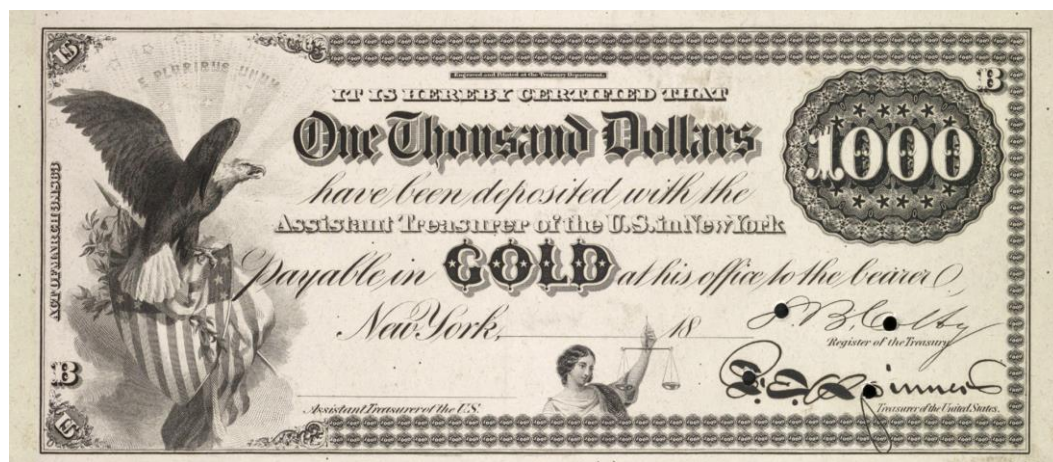 E PLURIBUS UNUM
Engraved and Printed at the Treasury Department.
B
IT IS HEREBY CERTIFIED THAT
One Thousand Dollars
1000
have been deposited with the
Assistant Treasurer of the U.S. in New York
ACT OF MARCH 3, 1863
payable in GOLD at his office to the bearer
New York, 18
J. B. Colby
Register of the Treasury
B
F. E. Spinner
Assistant Treasurer of the U.S.
Treasurer of the United States.